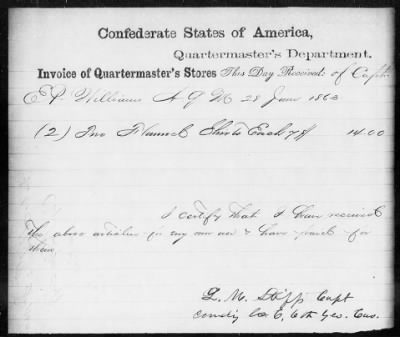 Confederate States of America,
Quartermaster's Department.
Invoice of Quartermaster's Stores This Day Received of Capt.
E. P. Williams A Q M 28 June 1863
(2) Two Flannel Shirts Each 7 $ 14.00
I certify that I have received
the above articles for my own use & have paid for
them
L. M. Capt
comdg Co E, 6th Geo. Cav.